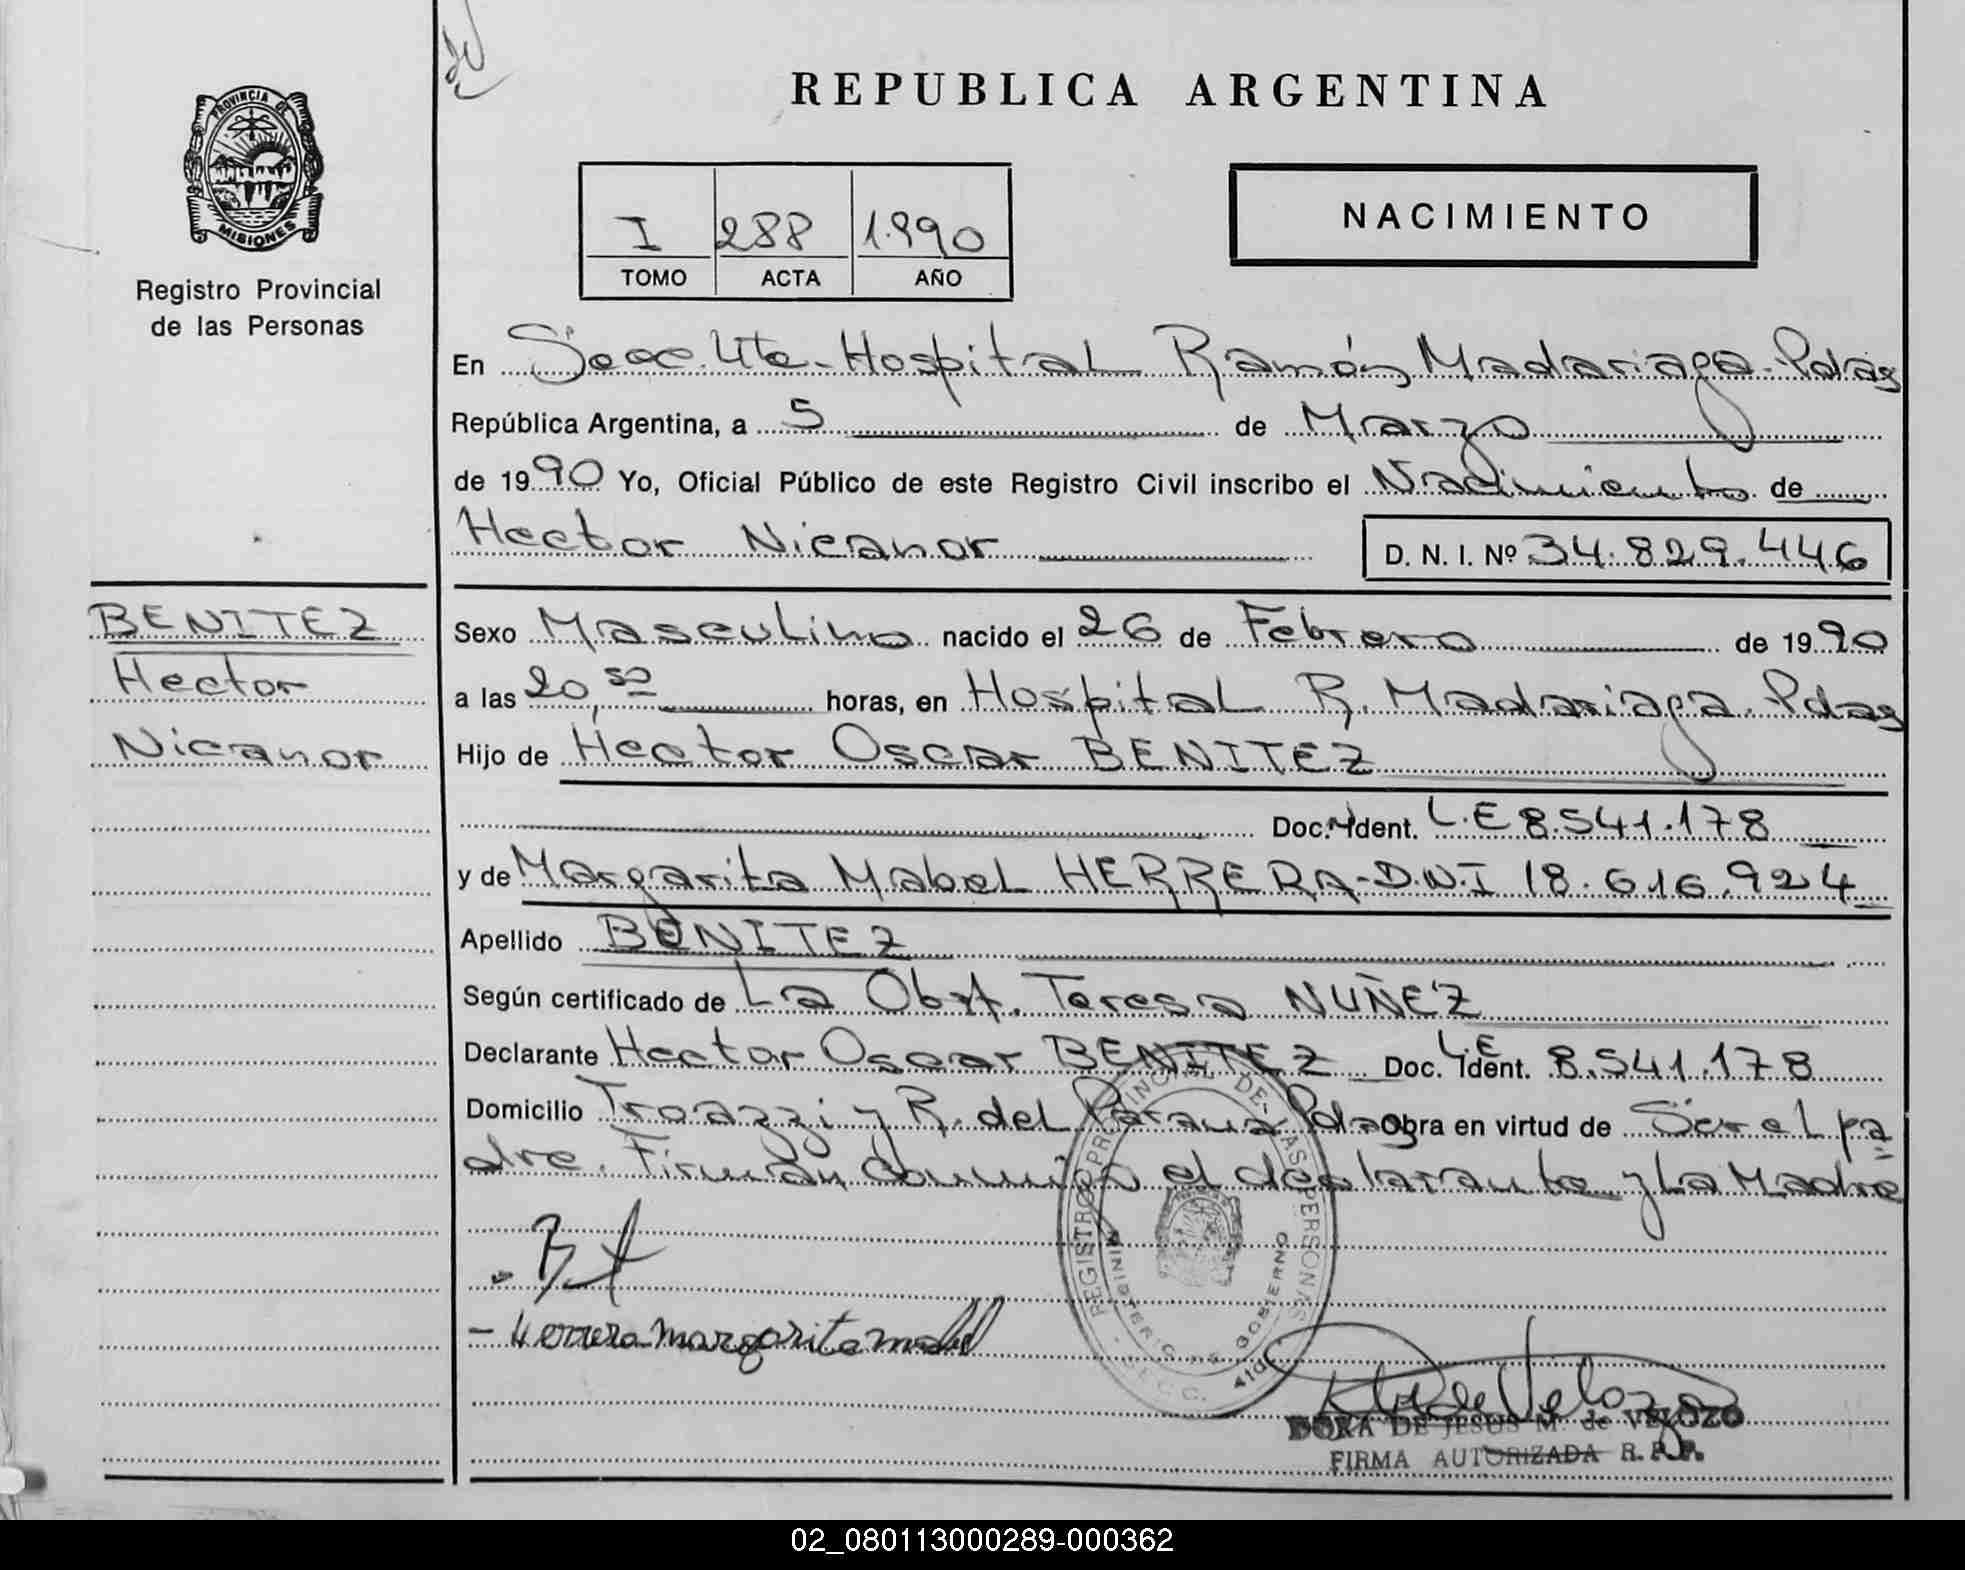 REPUBLICA ARGENTINA
PROVINCIA DE
MISIONES
Registro Provincial
de las Personas
I 288 1.990
TOMO ACTA AÑO
NACIMIENTO
En Secc. 4ta - Hospital Ramón Madariaga - Pdas
República Argentina, a 5 de Marzo
de 1990 Yo, Oficial Público de este Registro Civil inscribo el Nacimiento de
Hector Nicanor D. N. I. Nº 34.829.446
BENITEZ
Hector
Nicanor
Sexo Masculino nacido el 26 de Febrero de 1990
a las 20,50 horas, en Hospital R. Madariaga - Pdas
Hijo de Hector Oscar BENITEZ
Doc. Ident. L.E 8.541.178
y de Margarita Mabel HERRERA - D.N.I 18.616.924
Apellido BENITEZ
Según certificado de La Obst. Teresa NUÑEZ
Declarante Hector Oscar BENITEZ Doc. Ident. L.E 8.541.178
Domicilio y R. del Parana Pdas Obra en virtud de Ser el pa
dre. Firman conmigo el declarante y La Madre
- Herrera margarita mabel
REGISTRO PROVINCIAL DE LAS PERSONAS
MINISTERIO DE GOBIERNO
DORA DE JESUS M. de VELOZO
FIRMA AUTORIZADA R. P. P.
02_080113000289-000362